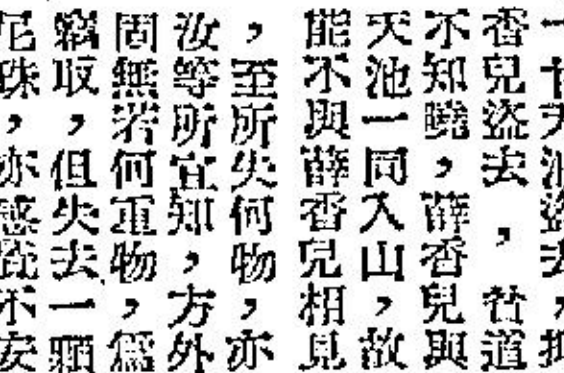 天池盜去,抑
香兒盜去,貧道
不知曉,薛香兒與
天池一同入山,故
能不與薛香兒相見
,至所失何物,亦
汝等所宜知,方外
固無若何重物,爲
竊取,但失去一顆
尼珠,亦感覺不安